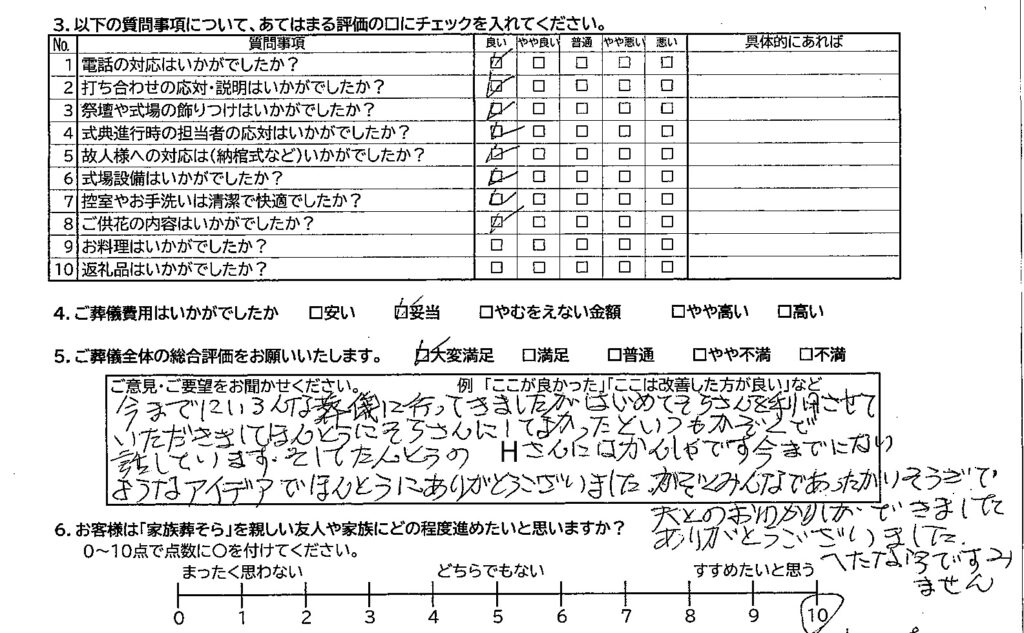 3. 以下の質問事項について、あてはまる評価の□にチェックを入れてください。
No. 質問事項 良い やや良い 普通 やや悪い 悪い 具体的にあれば
1 電話の対応はいかがでしたか？ ☑ □ □ □ □
2 打ち合わせの応対・説明はいかがでしたか？ ☑ □ □ □ □
3 祭壇や式場の飾りつけはいかがでしたか？ ☑ □ □ □ □
4 式典進行時の担当者の応対はいかがでしたか？ ☑ □ □ □ □
5 故人様への対応は(納棺式など)いかがでしたか？ ☑ □ □ □ □
6 式場設備はいかがでしたか？ ☑ □ □ □ □
7 控室やお手洗いは清潔で快適でしたか？ ☑ □ □ □ □
8 ご供花の内容はいかがでしたか？ ☑ □ □ □ □
9 お料理はいかがでしたか？ □ □ □ □ □
10 返礼品はいかがでしたか？ □ □ □ □ □
4. ご葬儀費用はいかがでしたか □安い ☑妥当 □やむをえない金額 □やや高い □高い
5. ご葬儀全体の総合評価をお願いいたします。 ☑大変満足 □満足 □普通 □やや不満 □不満
ご意見・ご要望をお聞かせください。 例 「ここが良かった」「ここは改善した方が良い」など
今までにいろんな葬儀に行ってきましたがはじめてそらさんを利用させて
いただきましてほんとうにそらさんにしてよかったといつもかぞくで
話しています。そしてたんとうの Hさんにはかんしゃです今までにない
ようなアイデアでほんとうにありがとうございました。かぞくみんなであったかいそうぎで
夫とのおわかれができました
ありがとうございました.
へたな字ですみ
ません
6. お客様は「家族葬そら」を親しい友人や家族にどの程度進めたいと思いますか？
0～10点で点数に○を付けてください。
まったく思わない どちらでもない すすめたいと思う
0 1 2 3 4 5 6 7 8 9 10